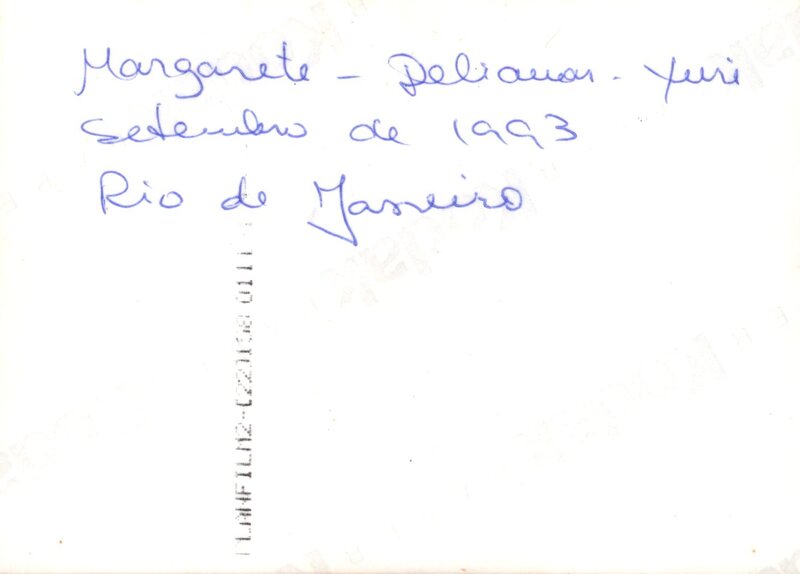 Margarete - Delianar - Yuri
Setembro de 1993
Rio de Janeiro